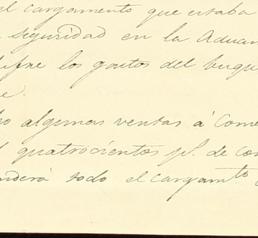 el cargamento que estaba
seguridad en la Aduan
sufre los gastos del buque
algunas ventas á Come
quatrocientos ps. de con
todo el cargamto